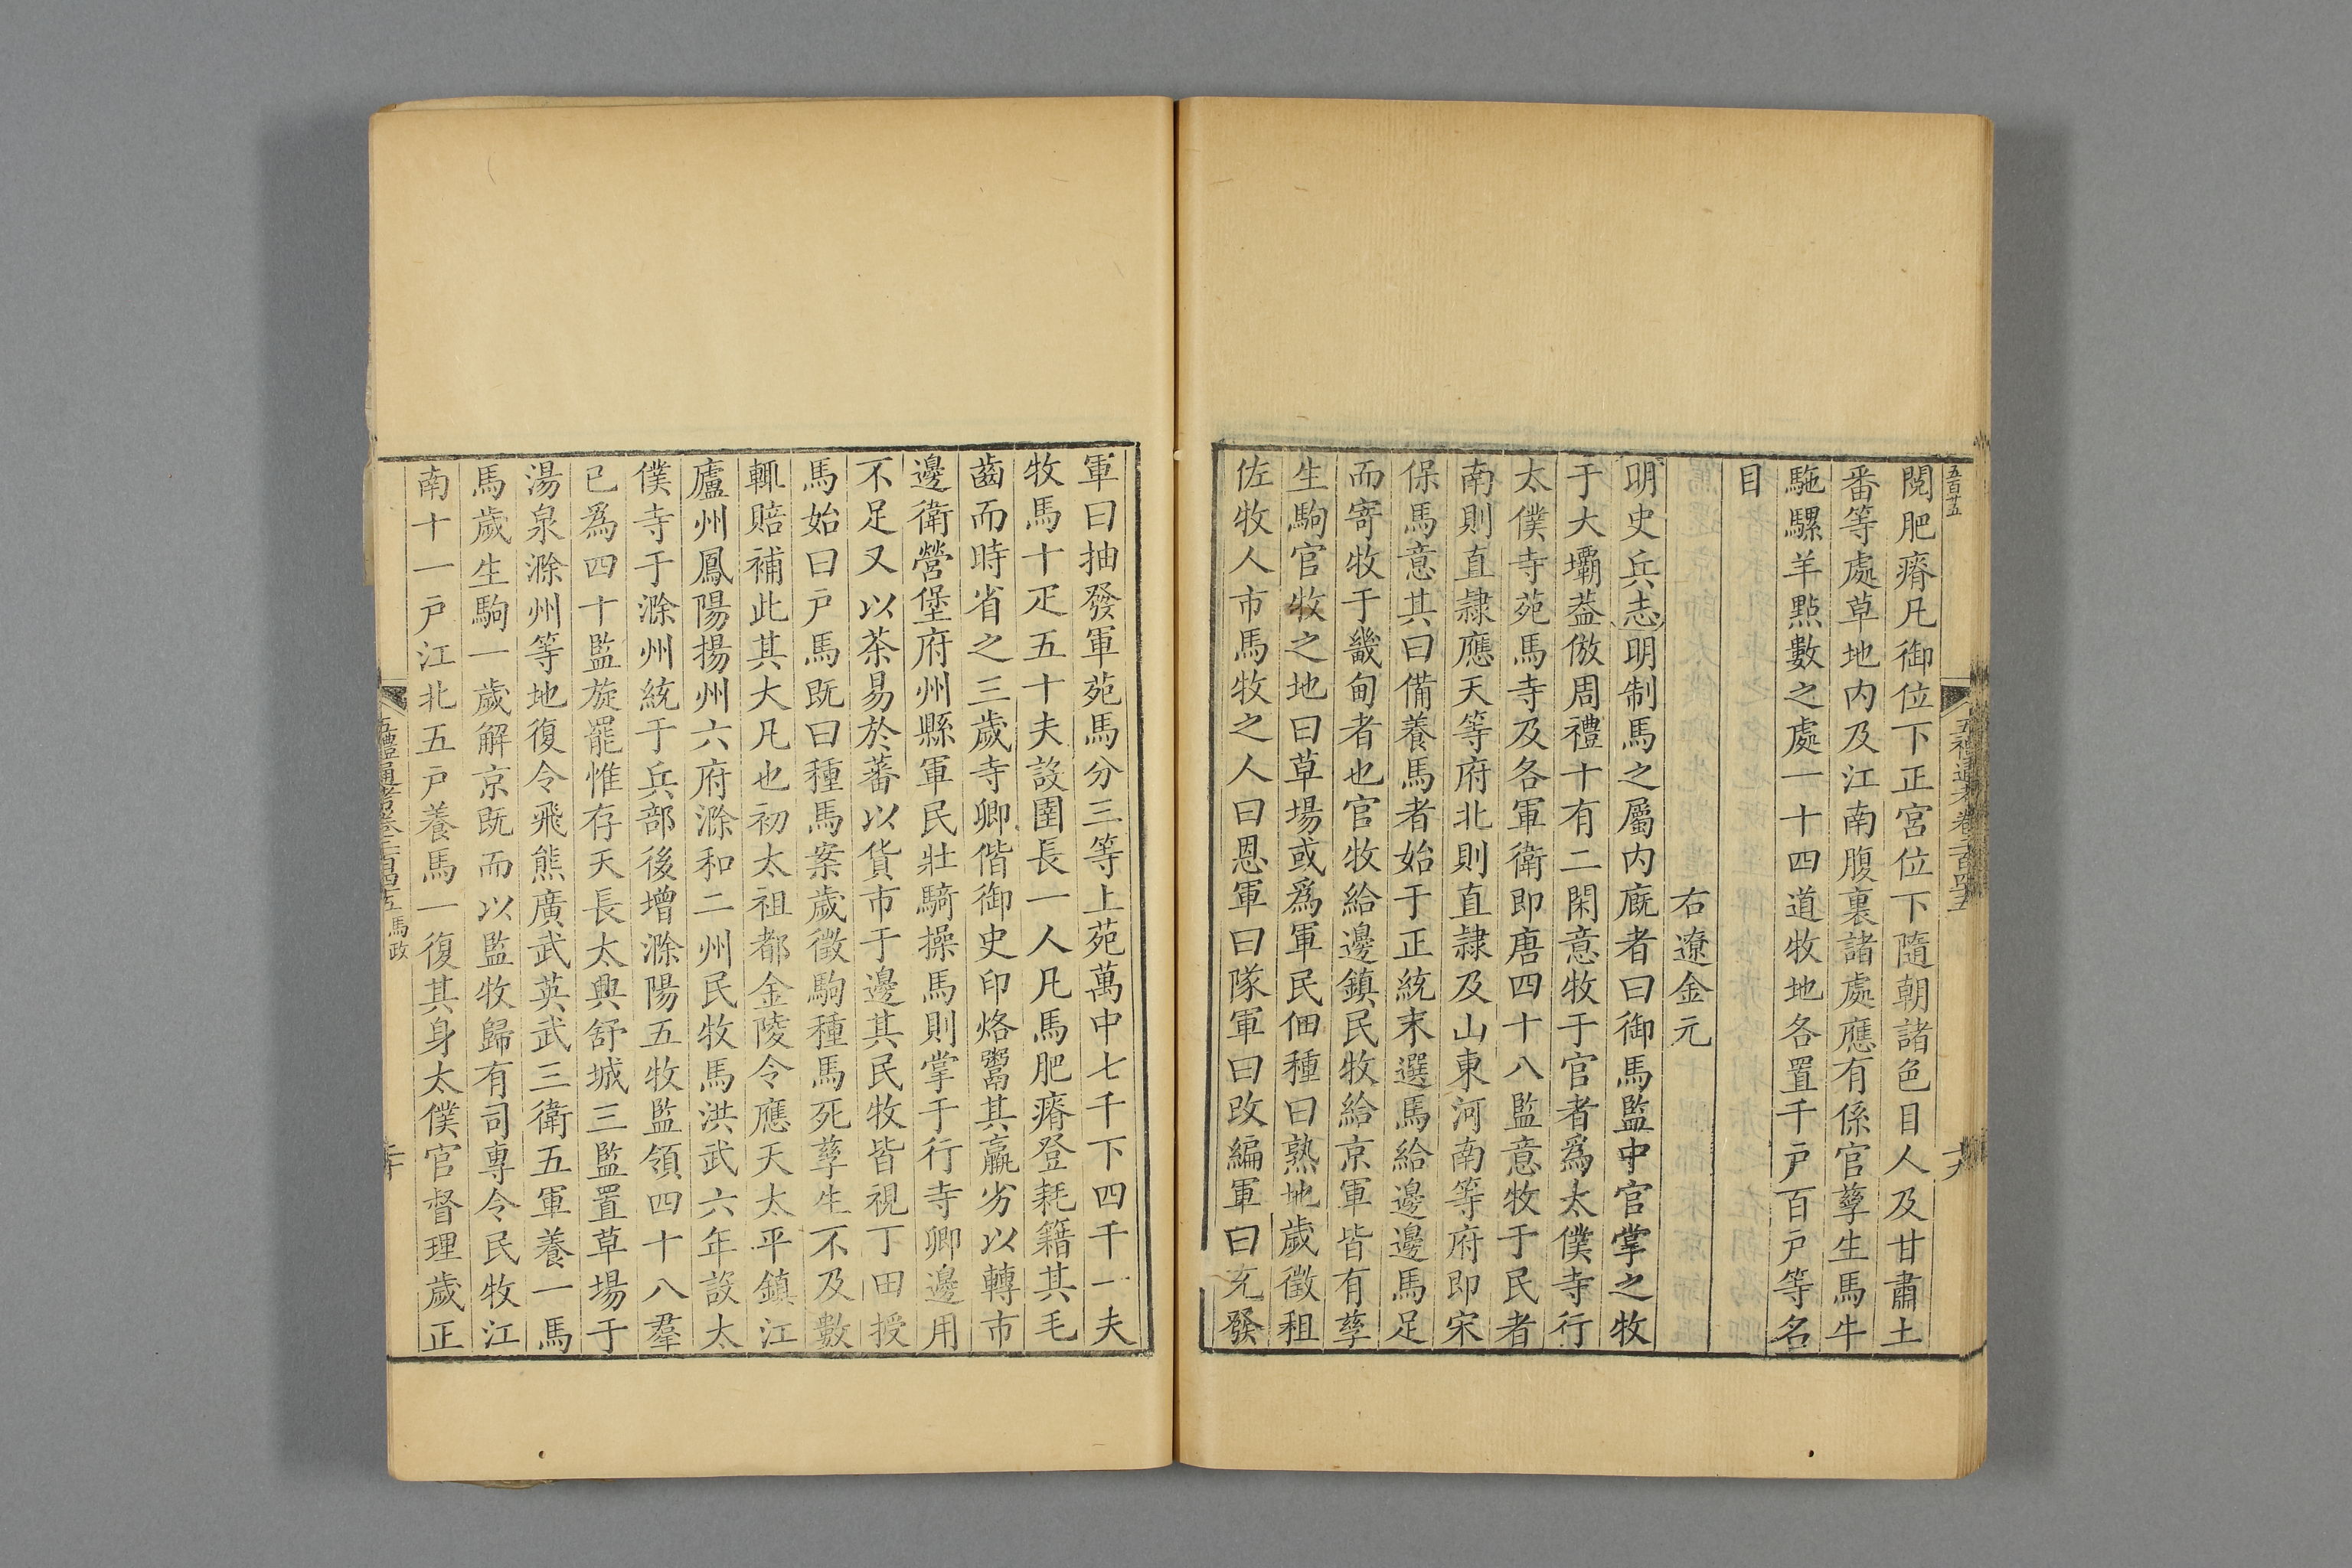 五百廿五
五禮通考卷二百四十五
十九
閱肥瘠凡御位下正宮位下隨朝諸色目人及甘肅土
番等處草地内及江南腹裏諸處應有係官孳生馬牛
駞騾羊點數之處一十四道牧地各置千戸百戸等名
目
右遼金元
明史兵志明制馬之屬内廐者曰御馬監中官掌之牧
于大壩葢倣周禮十有二閑意牧于官者爲太僕寺行
太僕寺苑馬寺及各軍衛即唐四十八監意牧于民者
南則直隷應天等府北則直隷及山東河南等府即宋
保馬意其曰備養馬者始于正統末選馬給邊邊馬足
而寄牧于畿甸者也官牧給邊鎮民牧給京軍皆有孳
生駒官牧之地曰草場或爲軍民佃種曰熟地歲徵租
佐牧人市馬牧之人曰恩軍曰隊軍曰改編軍曰充發
軍曰抽發軍苑馬分三等上苑萬中七千下四千一夫
牧馬十疋五十夫設圉長一人凡馬肥瘠登耗籍其毛
齒而時省之三歲寺卿偕御史印烙鬻其羸劣以轉市
邊衛營堡府州縣軍民壯騎操馬則掌于行寺卿邊用
不足又以茶易於蕃以貨市于邊其民牧皆視丁田授
馬始曰戸馬既曰種馬案歲徵駒種馬死孳生不及數
輒賠補此其大凡也初太祖都金陵令應天太平鎮江
廬州鳳陽揚州六府滁和二州民牧馬洪武六年設太
僕寺于滁州統于兵部後增滁陽五牧監領四十八羣
已爲四十監旋罷惟存天長太興舒城三監置草場于
湯泉滁州等地復令飛熊廣武英武三衛五軍養一馬
馬歲生駒一歲解京既而以監牧歸有司專令民牧江
南十一戸江北五戸養馬一復其身太僕官督理歲正
五禮通考卷二百四十五 馬政
二十